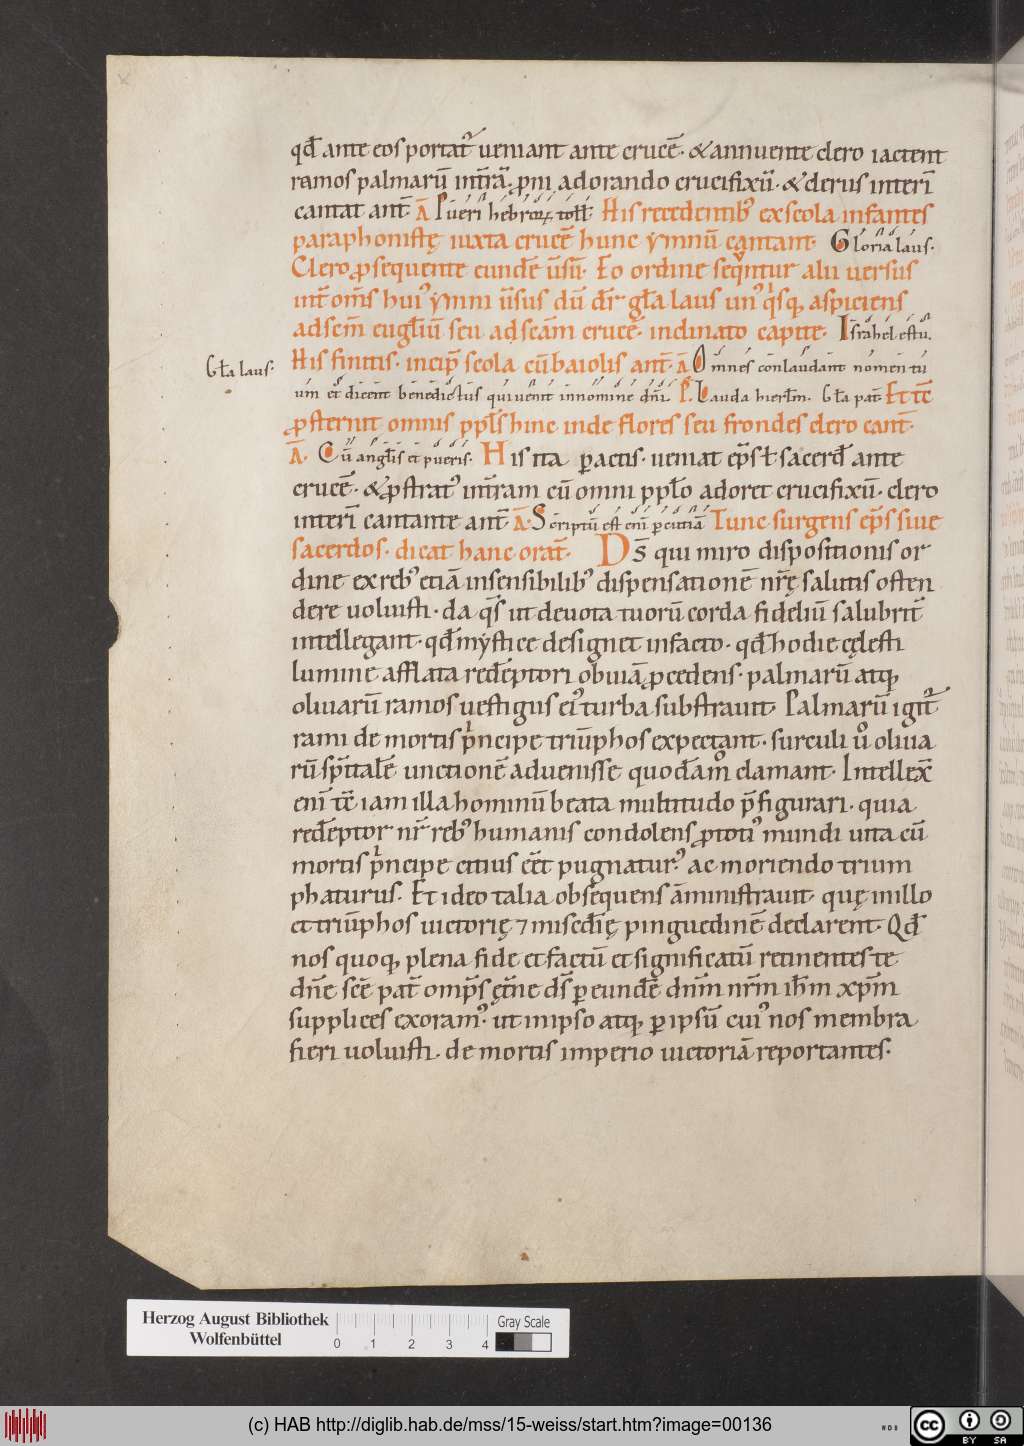 qđ ante eos portat᷑ ueniant ante crucē. & annuente clero iactent
ramos palmarū int̄rā. ꝓni adorando crucifixū. & clerus interī
cantat ant̄ Ā Pueri hebreoꝝ toll̄. His recedentibꝰ ex scola infantes
paraphonistę iuxta crucē hunc ymnū cantant. Gloria laus.
Clero ꝓsequente eundē ūsū. Eo ordine seq̄ntur alii uersus
int̄ om̄s huiꝰ ymni ūsus dū dr̄ gl̄a laus unꝰ q̇sq; aspiciens
ad scm̄ eugl̄iū seu ad scām crucē. inclinato capite. Israhel es tu.
Gl̄a laus.
His finitis. incip̄ scola cū baiolis ant̄. ā Omnes conlaudant nomen tu
um et dicent benedictus qui uenit in nomine dn̄i. P̄. Lauda hierlm̄. Gl̄a pat̄ Et tē
ꝓsternit omnis ppl̄s hinc inde flores seu frondes clero cant̄.
Ā. Cū angl̄is et pueris. His ita ꝑactis. ueniat ep̄s ł sacerđ ante
crucē. & ꝓstratꝰ int̄ram cū omni ppl̄o adoret crucifixū. clero
interī cantante ant̄ Ā. Scriptū est enī percutiā Tunc surgens ep̄s siue
sacerdos. dicat hanc orat̄. Ds̄ qui miro dispositionis or
dine ex rebꝰ etiā insensibilibꝰ dispensationē nr̄ę salutis osten
dere uoluisti. da q̄s ut deuota tuorū corda fideliū salubrit᷑
intellegant. qđ mystice designet in facto. qđ hodie cęlesti
lumine afflata redēptori obuiā ꝓcedens. palmarū atq;
oliuarū ramos uestigiis eiꝰ turba substrauit. Palmarū igit᷑
rami de mortis p̄ncipe triūphos expectant. surculi ů oliua
rū sp̄italē unctionē aduenisse quodāmͦ clamant. Intellex̄
enī tē iam illa hominū beata multitudo p̄figurari. quia
redēptor nr̄ rebꝰ humanis condolens ꝓ totiꝰ mundi uita cū
mortis p̄ncipe citius eēt pugnaturꝰ. ac moriendo trium
phaturus. Et ideo talia obsequens āministrauit. quę in illo
et triūphos uictorię ⁊ misedīę pinguedinē declarent. Qđ
nos quoq; plena fide et factū et significatū retinentes. te
dn̄e scē pat̄ omp̄s ęt̄ne ds̄ ꝑ eundē dn̄m nr̄m ih̄m xp̄m
supplices exoramꝰ. ut in ipso atq; ꝑ ipsū cuiꝰ nos membra
fieri uoluisti. de mortis imperio uictoriā reportantes.
Herzog August Bibliothek
Wolfenbüttel
0 1 2 3 4
Gray Scale
(c) HAB http://diglib.hab.de/mss/15-weiss/start.htm?image=00136
cc BY SA